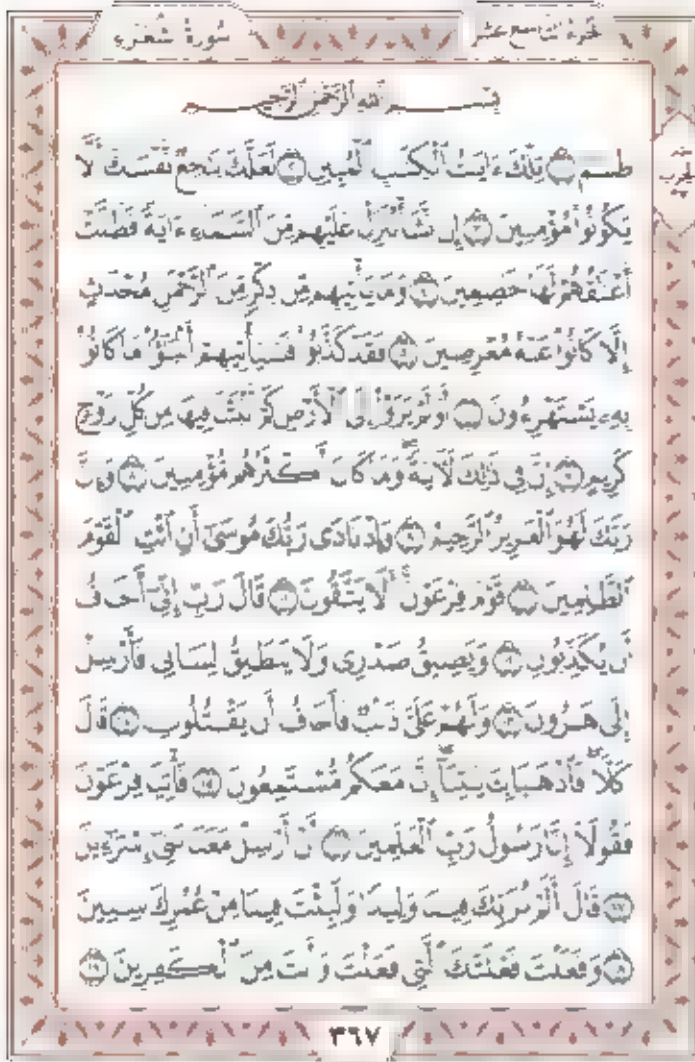 سورة الشعراء
الجزء التاسع عشر
بسم الله الرحمن الرحيم
طسٓمٓ ١ تِلْكَ ءَايَٰتُ ٱلْكِتَٰبِ ٱلْمُبِينِ ٢ لَعَلَّكَ بَٰخِعٌ نَّفْسَكَ أَلَّا
يَكُونُوا۟ مُؤْمِنِينَ ٣ إِن نَّشَأْ نُنَزِّلْ عَلَيْهِم مِّنَ ٱلسَّمَآءِ ءَايَةً فَظَلَّتْ
أَعْنَٰقُهُمْ لَهَا خَٰضِعِينَ ٤ وَمَا يَأْتِيهِم مِّن ذِكْرٍ مِّنَ ٱلرَّحْمَٰنِ مُحْدَثٍ
إِلَّا كَانُوا۟ عَنْهُ مُعْرِضِينَ ٥ فَقَدْ كَذَّبُوا۟ فَسَيَأْتِيهِمْ أَنۢبَٰٓؤُا۟ مَا كَانُوا۟
بِهِۦ يَسْتَهْزِءُونَ ٦ أَوَلَمْ يَرَوْا۟ إِلَى ٱلْأَرْضِ كَمْ أَنۢبَتْنَا فِيهَا مِن كُلِّ زَوْجٍ
كَرِيمٍ ٧ إِنَّ فِى ذَٰلِكَ لَءَايَةً وَمَا كَانَ أَكْثَرُهُم مُّؤْمِنِينَ ٨ وَإِنَّ
رَبَّكَ لَهُوَ ٱلْعَزِيزُ ٱلرَّحِيمُ ٩ وَإِذْ نَادَىٰ رَبُّكَ مُوسَىٰٓ أَنِ ٱئْتِ ٱلْقَوْمَ
ٱلظَّٰلِمِينَ ١٠ قَوْمَ فِرْعَوْنَ أَلَا يَتَّقُونَ ١١ قَالَ رَبِّ إِنِّىٓ أَخَافُ
أَن يُكَذِّبُونِ ١٢ وَيَضِيقُ صَدْرِى وَلَا يَنطَلِقُ لِسَانِى فَأَرْسِلْ
إِلَىٰ هَٰرُونَ ١٣ وَلَهُمْ عَلَىَّ ذَنۢبٌ فَأَخَافُ أَن يَقْتُلُونِ ١٤ قَالَ
كَلَّا فَٱذْهَبَا بِـَٔايَٰتِنَآ إِنَّا مَعَكُم مُّسْتَمِعُونَ ١٥ فَأْتِيَا فِرْعَوْنَ
فَقُولَآ إِنَّا رَسُولُ رَبِّ ٱلْعَٰلَمِينَ ١٦ أَنْ أَرْسِلْ مَعَنَا بَنِىٓ إِسْرَٰٓءِيلَ
١٧ قَالَ أَلَمْ نُرَبِّكَ فِينَا وَلِيدًا وَلَبِثْتَ فِينَا مِنْ عُمُرِكَ سِنِينَ
١٨ وَفَعَلْتَ فَعْلَتَكَ ٱلَّتِى فَعَلْتَ وَأَنتَ مِنَ ٱلْكَٰفِرِينَ ١٩
٣٦٧